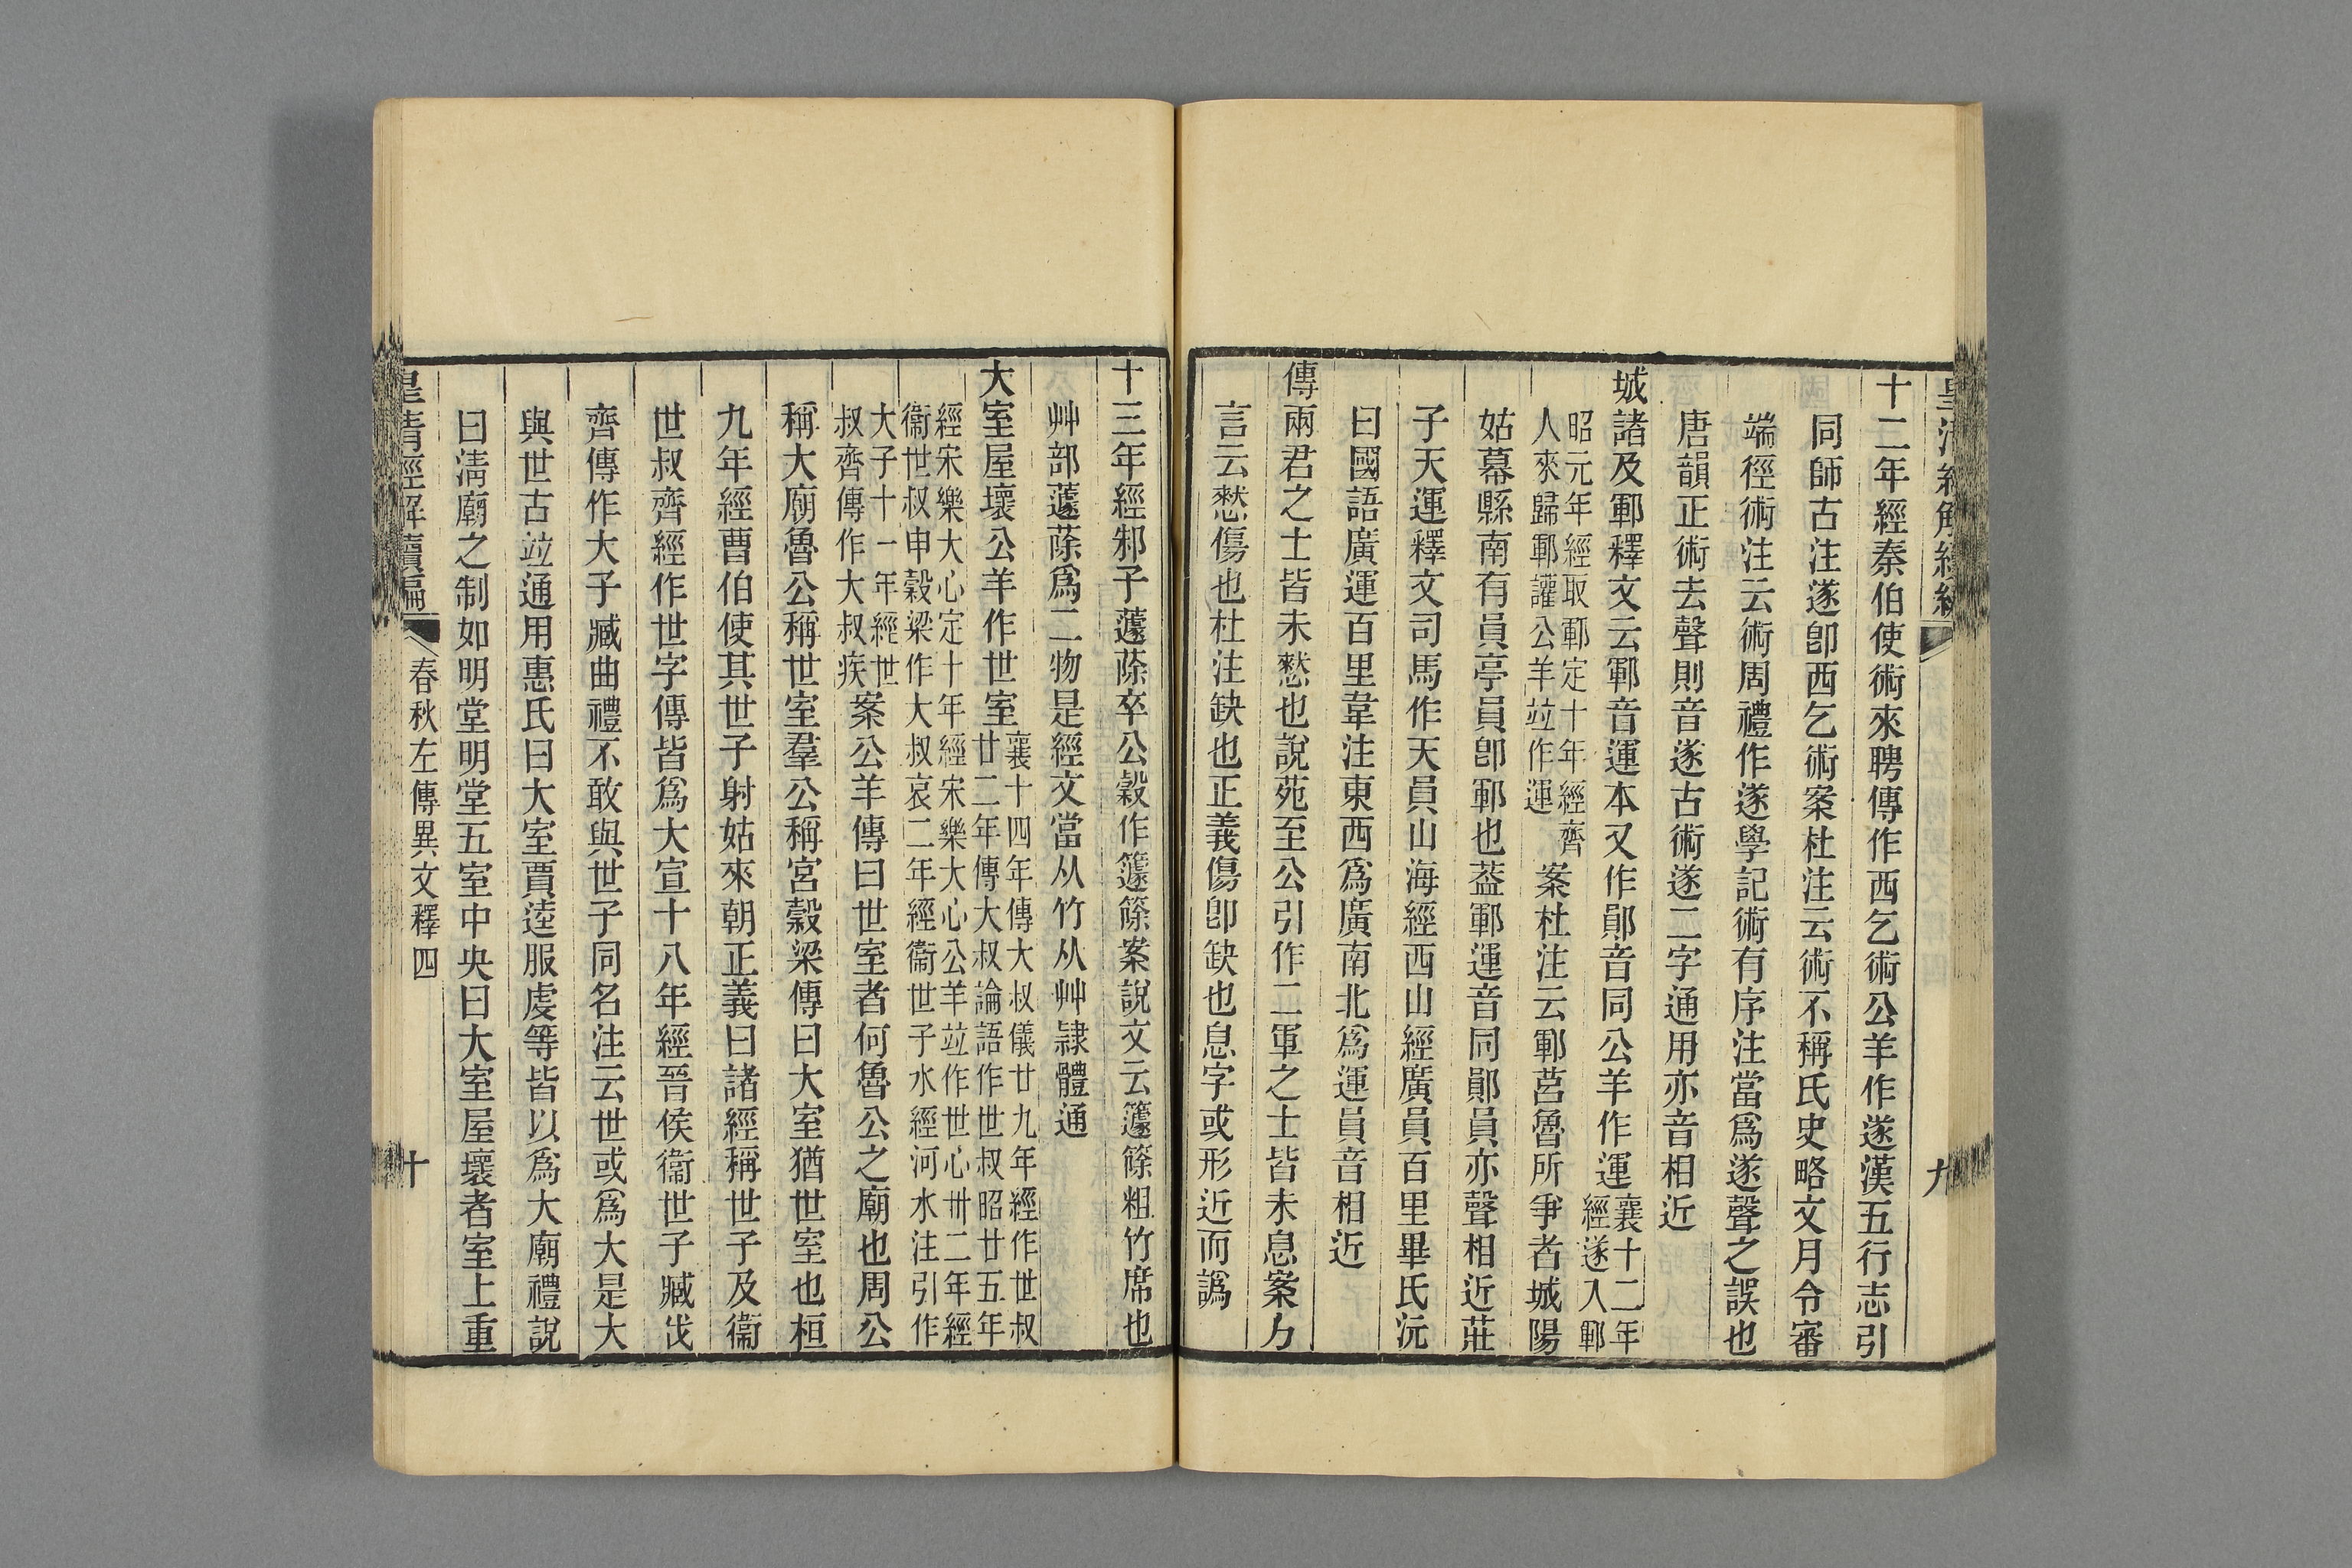 皇清經解續編
九
十二年經秦伯使術來聘傳作西乞術公羊作遂漢五行志引
同師古注遂卽西乞術案杜注云術不稱氏史略文月令審
端徑術注云術周禮作遂學記術有序注當爲遂聲之誤也
唐韻正術去聲則音遂古術遂二字通用亦音相近
城諸及鄆釋文云鄆音運本又作鄖音同公羊作運襄十二年
經遂入鄆
昭元年經取鄆定十年經齊
人來歸鄆讙公羊竝作運案杜注云鄆莒魯所爭者城陽
姑幕縣南有員亭員卽鄆也葢鄆運音同鄖員亦聲相近莊
子天運釋文司馬作天員山海經西山經廣員百里畢氏沅
曰國語廣運百里韋注東西爲廣南北爲運員音相近
傳兩君之士皆未憖也說苑至公引作二軍之士皆未息案方
言云憖傷也杜注缺也正義傷卽缺也息字或形近而譌
十三年經邾子蘧蒢卒公穀作籧篨案說文云籧篨粗竹席也
艸部蘧蒢爲二物是經文當从竹从艸隷體通
大室屋壞公羊作世室襄十四年傳大叔儀廿九年經作世叔
廿二年傳大叔論語作世叔昭廿五年
經宋樂大心定十年經宋樂大心公羊竝作世心卌二年經
衞世叔申穀梁作大叔哀二年經衞世子水經河水注引作
大子十一年經世
叔齊傳作大叔疾案公羊傳曰世室者何魯公之廟也周公
稱大廟魯公稱世室羣公稱宮穀梁傳曰大室猶世室也桓
九年經曹伯使其世子射姑來朝正義曰諸經稱世子及衞
世叔齊經作世字傳皆爲大宣十八年經晉侯衞世子臧伐
齊傳作大子臧曲禮不敢與世子同名注云世或爲大是大
與世古竝通用惠氏曰大室賈逵服虔等皆以爲大廟禮說
曰淸廟之制如明堂明堂五室中央曰大室屋壞者室上重
皇清經解續編
春秋左傳異文釋四
十